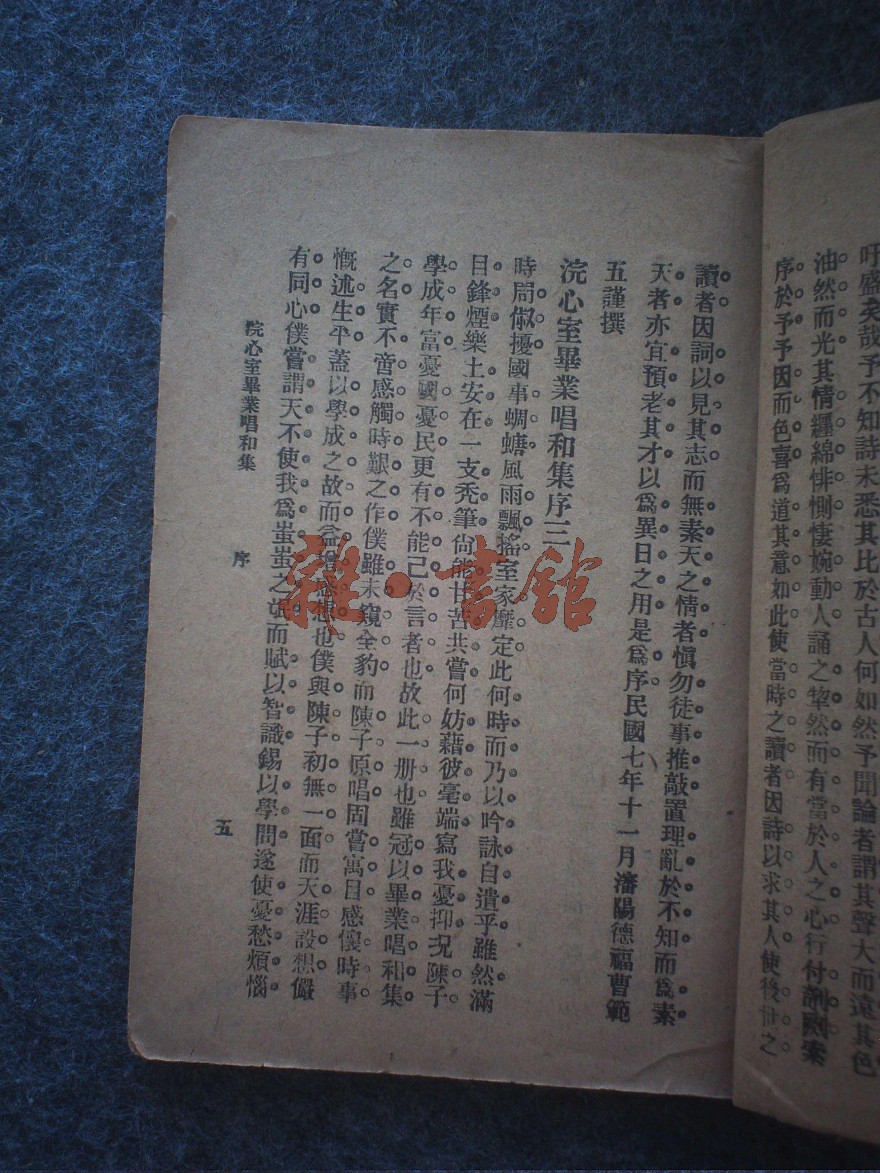 吁盛矣哉予不知詩未悉其比於古人何如然予聞論者謂其聲大而遠其色
油然而光其情纏綿悱惻悽婉動人誦之犂然而有當於人之心行付剞劂素
序於予予因而色喜爲道其意如此使當時之讀者因詩以求其人使後世之
讀者因詞以見其志而無素天之情者愼勿徒事推敲置理亂於不知而爲素
天者亦宜預老其才以爲異日之用是爲序民國七年十一月瀋陽德福曹範
五謹撰
浣心室畢業唱和集序三
時局俶擾國事蜩螗風雨飄搖室家靡定此何時而乃以吟詠自遣乎雖然滿
目鋒煙樂土安在一支禿筆尙能甘苦共嘗何妨藉彼毫端寫我憂抑况陳子
學成年富憂國憂民更有不能已於言者也故此一册也雖冠以畢業唱和集
之名實不啻感觸時艱之作僕雖未窺全豹而陳子原唱固嘗寓目感懷時事
慨述生平蓋以學成之故而益增感想也僕與陳子初無一面而天涯設想儼
有同心僕嘗謂天不使我爲蚩蚩之氓而賦以智識錫以學問遂使憂愁煩惱
浣心室畢業唱和集 序 五
雜·書館